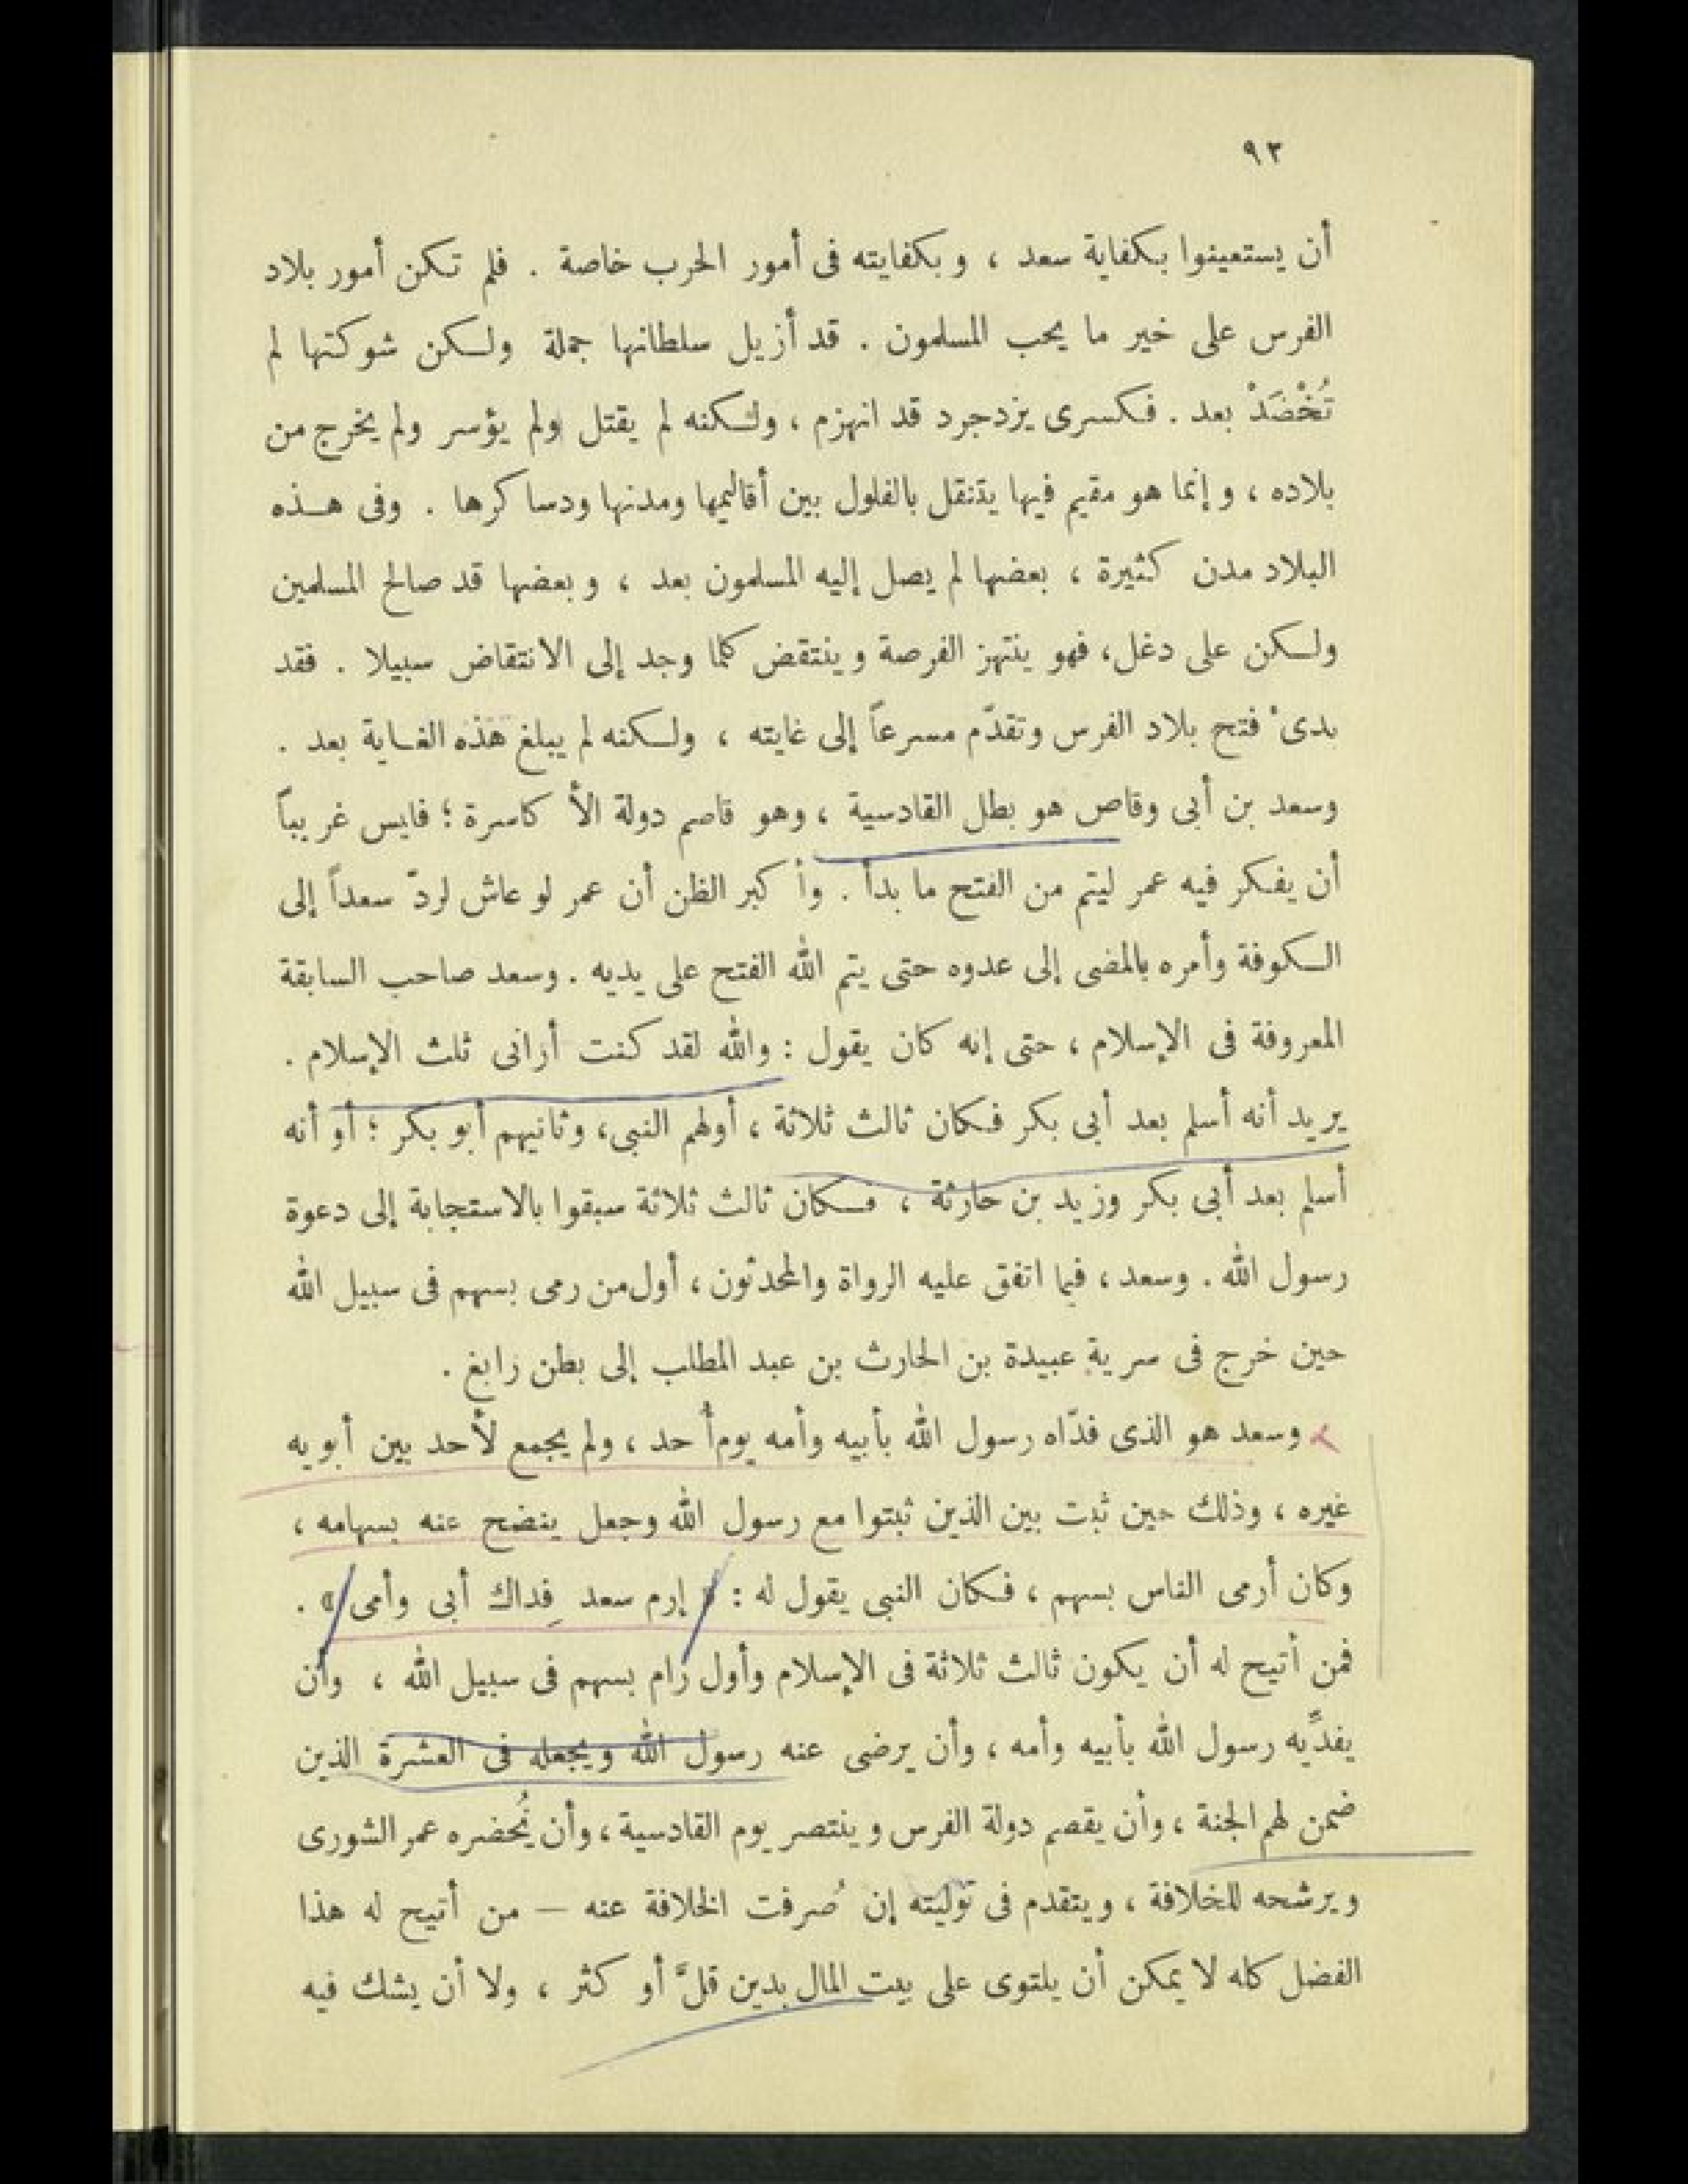 ٩٣
أن يستعينوا بكفاية سعد ، وبكفايته فى أمور الحرب خاصة . فلم تكن أمور بلاد
الفرس على خير ما يحب المسلمون . قد أزيل سلطانها جملة ولكن شوكتها لم
تُخْضَدْ بعد . فكسرى يزدجرد قد انهزم ، ولكنه لم يقتل ولم يؤسر ولم يخرج من
بلاده ، وإنما هو مقيم فيها يتنقل بالفلول بين أقاليمها ومدنها ودساكرها . وفى هذه
البلاد مدن كثيرة ، بعضها لم يصل إليه المسلمون بعد ، وبعضها قد صالح المسلمين
ولكن على دغل، فهو ينتهز الفرصة وينتقض كلما وجد إلى الانتقاض سبيلا . فقد
بدىْ فتح بلاد الفرس وتقدّم مسرعاً إلى غايته ، ولكنه لم يبلغ هذه الغاية بعد .
وسعد بن أبى وقاص هو بطل القادسية ، وهو قاصم دولة الأكاسرة ؛ فليس غريباً
أن يفكر فيه عمر ليتم من الفتح ما بدأ . وأكبر الظن أن عمر لو عاش لردّ سعداً إلى
الكوفة وأمره بالمضى إلى عدوه حتى يتم الله الفتح على يديه . وسعد صاحب السابقة
المعروفة فى الإسلام ، حتى إنه كان يقول : والله لقد كنت أرانى ثلث الإسلام .
يريد أنه أسلم بعد أبى بكر فكان ثالث ثلاثة ، أولهم النبى، وثانيهم أبو بكر ؛ أو أنه
أسلم بعد أبى بكر وزيد بن حارثة ، فكان ثالث ثلاثة سبقوا بالاستجابة إلى دعوة
رسول الله . وسعد ، فيما اتفق عليه الرواة والمحدثون ، أول من رمى بسهم فى سبيل الله
حين خرج فى سرية عبيدة بن الحارث بن عبد المطلب إلى بطن رابغ .
وسعد هو الذى فدّاه رسول الله بأبيه وأمه يوم أُحد ، ولم يجمع لأحد بين أبويه
غيره ، وذلك حين ثبت بين الذين ثبتوا مع رسول الله وجعل ينضح عنه بسهامه ،
وكان أرمى الناس بسهم ، فكان النبى يقول له : « إرم سعد فِداك أبى وأمى » .
فمن أتيح له أن يكون ثالث ثلاثة فى الإسلام وأول رام بسهم فى سبيل الله ، وأن
يفدِّيه رسول الله بأبيه وأمه ، وأن يرضى عنه رسول الله ويجعله فى العشرة الذين
ضمن لهم الجنة ، وأن يقصم دولة الفرس وينتصر يوم القادسية ، وأن يُحضره عمر الشورى
ويرشحه للخلافة ، ويتقدم فى توليته إن صُرفت الخلافة عنه — من أتيح له هذا
الفضل كله لا يمكن أن يلتوى على بيت المال بدين قلَّ أو كثر ، ولا أن يشك فيه